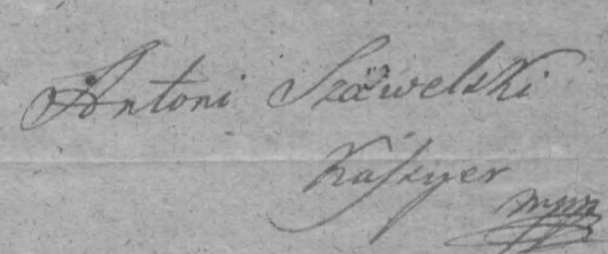 Antoni Szöwelski
Kaſsyer
mpp